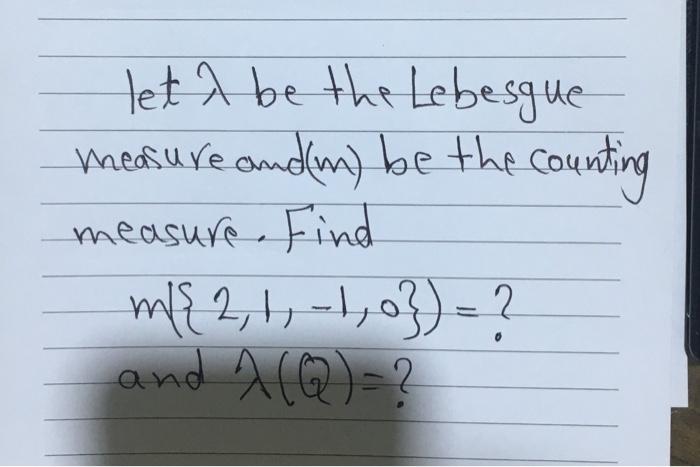 let λ be the Lebesgue
measure and(m) be the counting
measure. Find
m({2,1,-1,0})=?
and λ(Q)=?